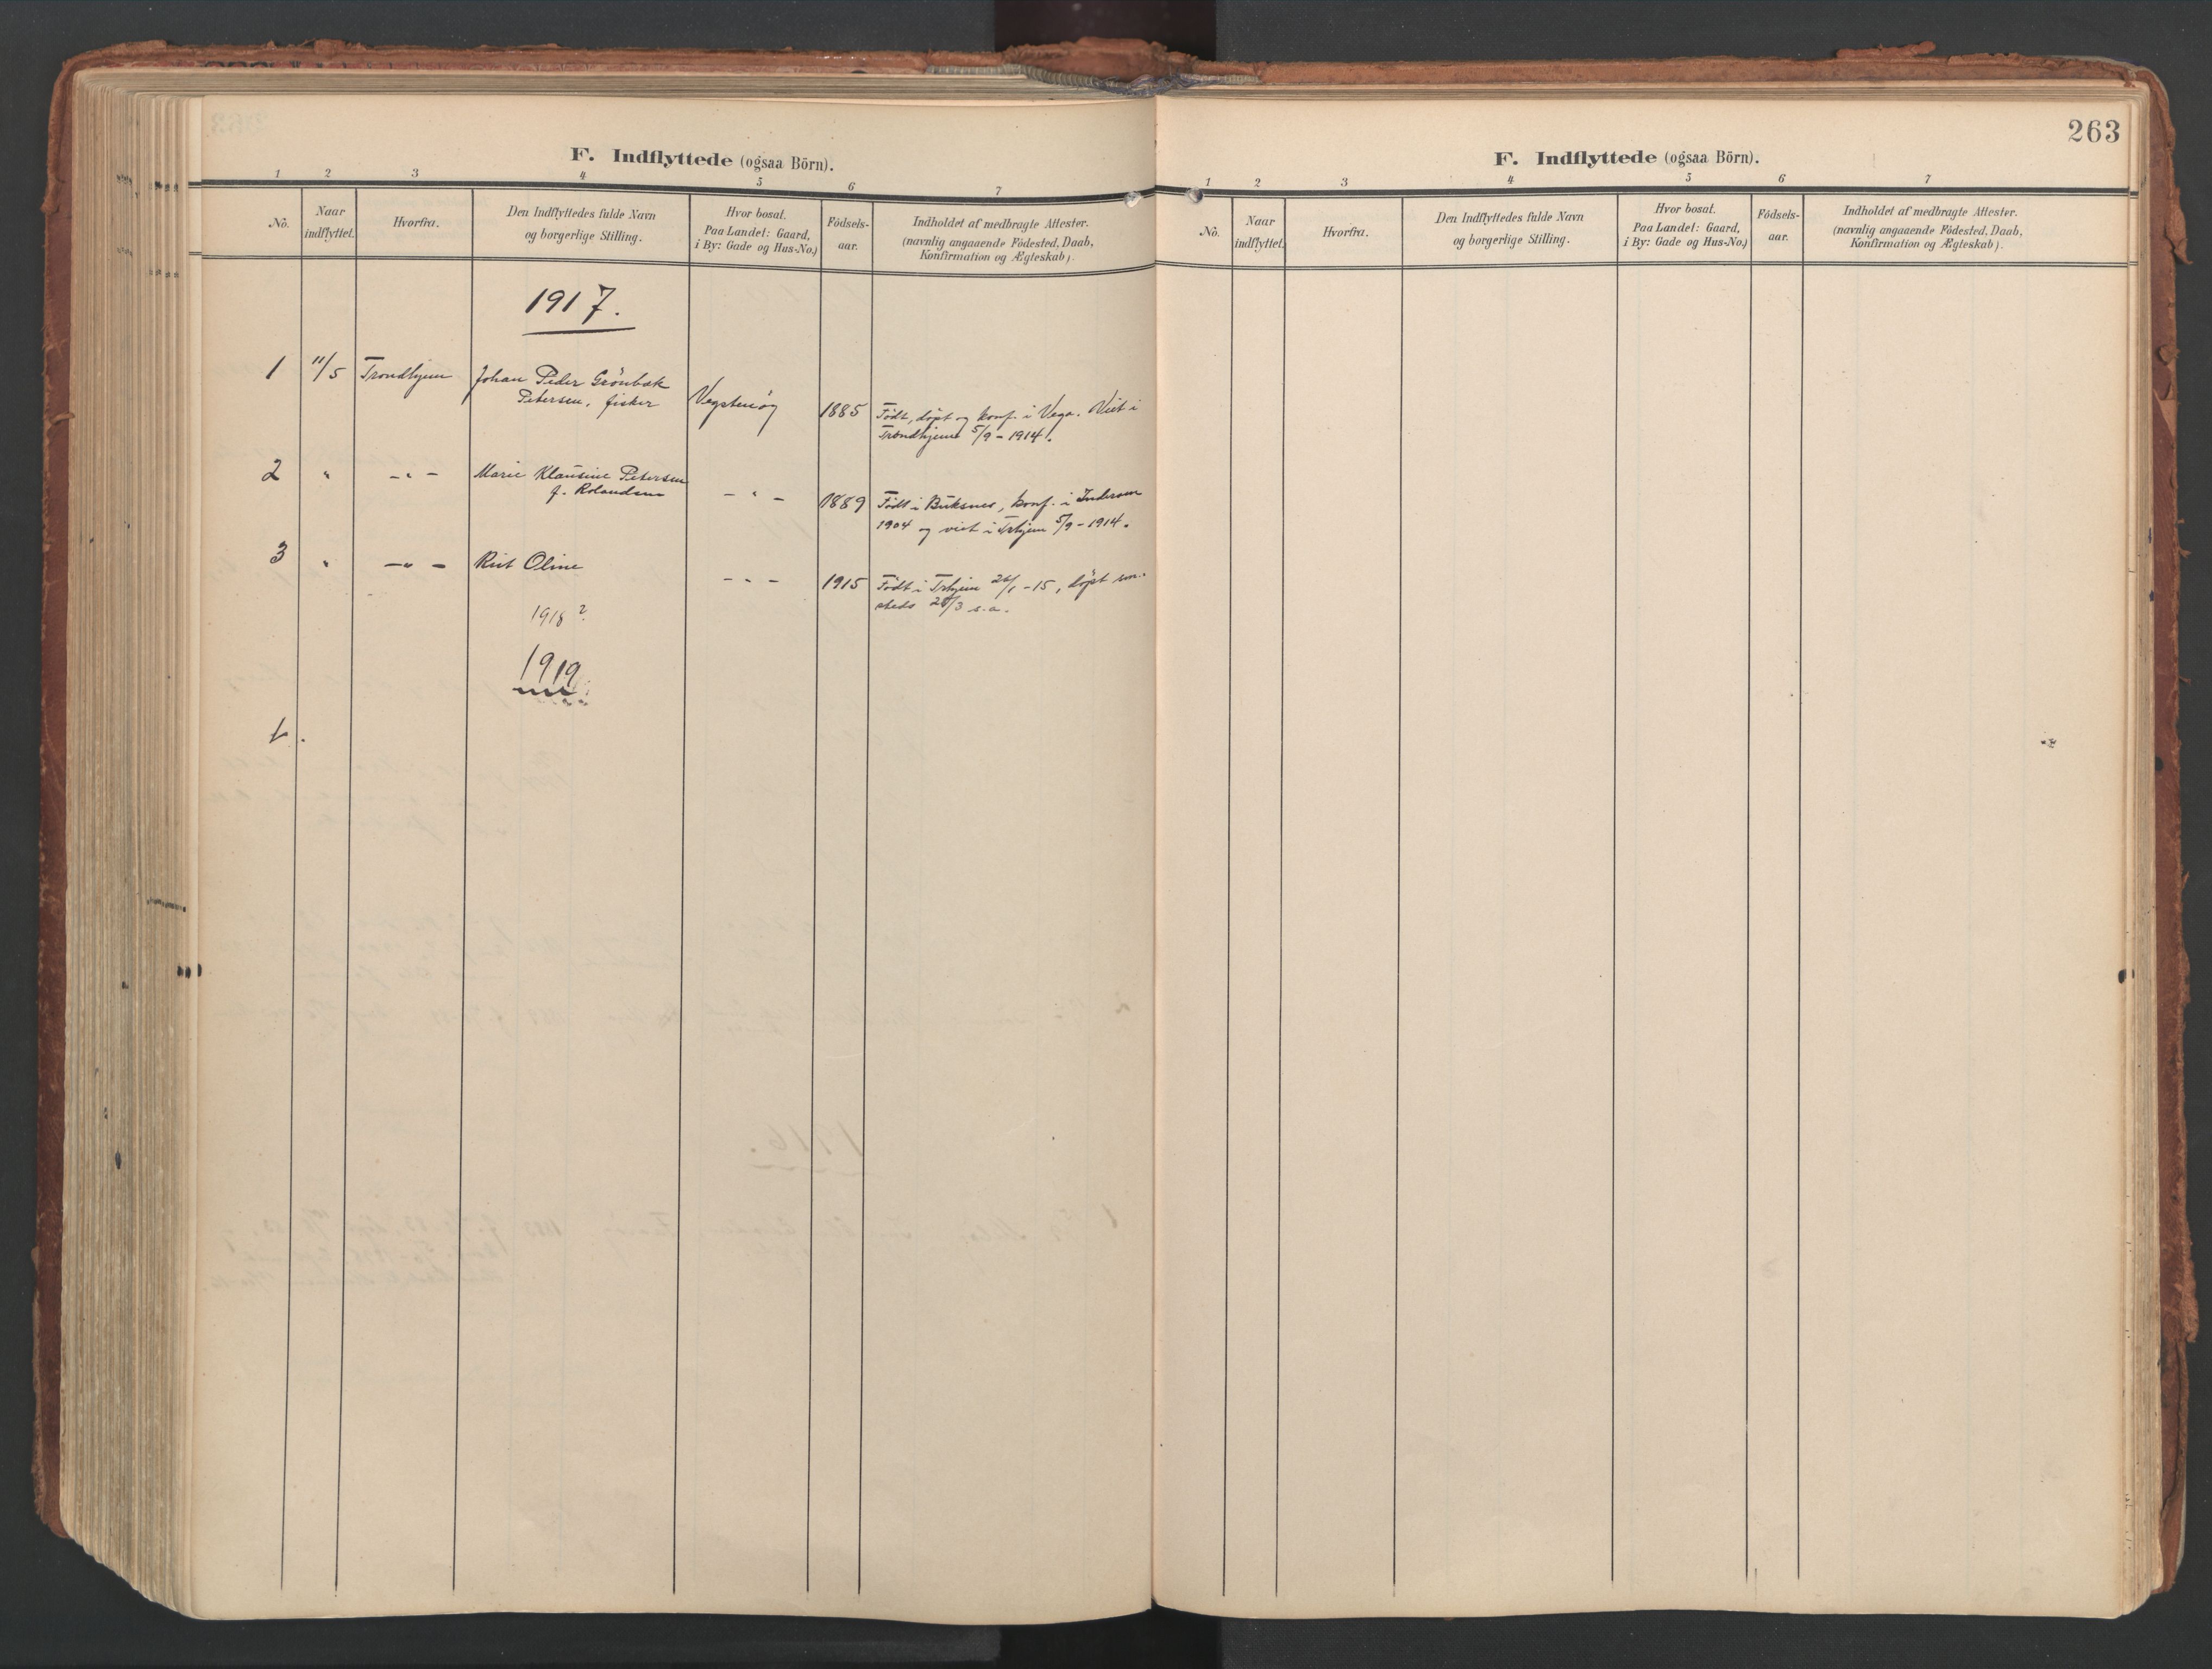 F. Indflyttede (ogsaa Börn).
1 2 3 4 5 6 7
No.
Naar
indflyttet.
Hvorfra.
Den Indflyttedes fulde Navn
og borgerlige Stilling.
Hvor bosat.
Paa Landet: Gaard,
i By: Gade og Hus-No.)
Födsels-
aar.
Indholdet af medbragte Attester.
(navnlig angaaende Födested, Daab,
Konfirmation og Ægteskab).
1917.
1 11/5 Trondhjem Johan Peder Grönbæk
Petersen, fisker
Vegstenöy 1885 Födt, döpt og konf. i Vega. Viet i
Trondhjem 5/9 - 1914.
2 " -"- Marie Klausine Petersen
f. Rolandsen
-"- 1889 Födt i Buksnes, konf. i
1904 og viet i Trhjem 5/9 - 1914.
3 " -"- Rut Oline
-"- 1915 Födt i Trhjem /1 - 15, döpt
steds /3 s.a.
1918?
1919
1.
263
F. Indflyttede (ogsaa Börn).
1 2 3 4 5 6 7
No.
Naar
indflyttet.
Hvorfra.
Den Indflyttedes fulde Navn
og borgerlige Stilling.
Hvor bosat.
Paa Landet: Gaard,
i By: Gade og Hus-No.)
Födsels-
aar.
Indholdet af medbragte Attester.
(navnlig angaaende Födested, Daab,
Konfirmation og Ægteskab).